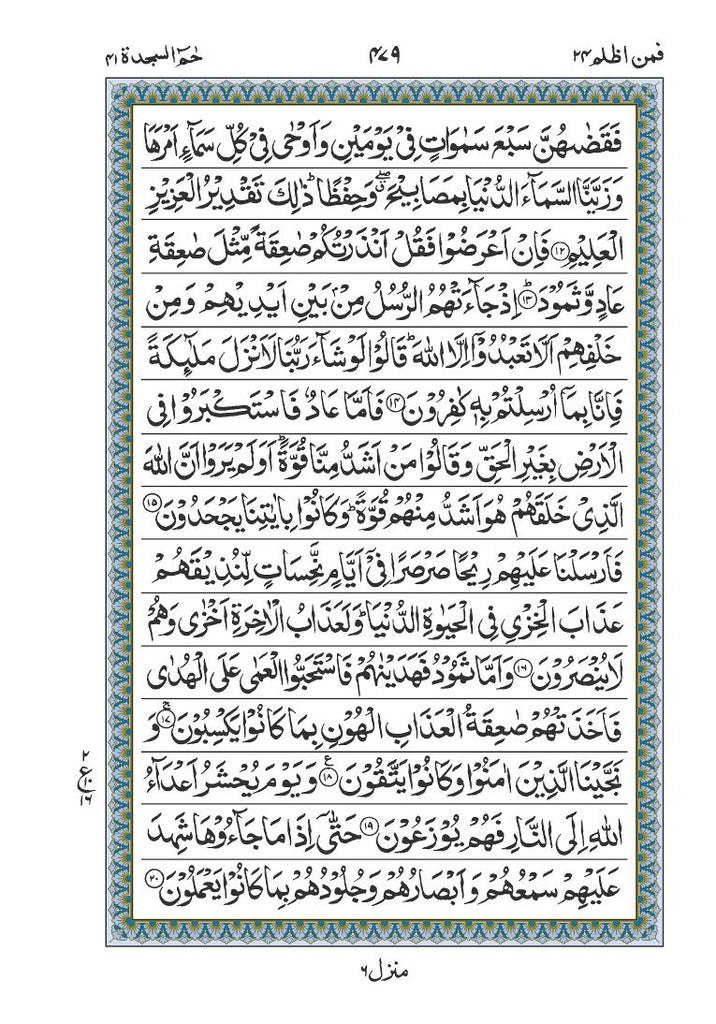 فمن اظلم ۲۴
۴۷۹
حٰمٓ السجدة ۴۱
فَقَضٰىهُنَّ سَبْعَ سَمٰوَاتٍ فِیْ یَوْمَیْنِ وَاَوْحٰی فِیْ كُلِّ سَمَآءٍ اَمْرَهَا
وَزَیَّنَّا السَّمَآءَ الدُّنْیَا بِمَصَابِیْحَ ۖۗ وَحِفْظًا ؕ ذٰلِكَ تَقْدِیْرُ الْعَزِیْزِ
الْعَلِیْمِ ۱۲ فَاِنْ اَعْرَضُوْا فَقُلْ اَنْذَرْتُكُمْ صٰعِقَةً مِّثْلَ صٰعِقَةِ
عَادٍ وَّثَمُوْدَ ؕ ۱۳ اِذْ جَآءَتْهُمُ الرُّسُلُ مِنْۢ بَیْنِ اَیْدِیْهِمْ وَمِنْ
خَلْفِهِمْ اَلَّا تَعْبُدُوْۤا اِلَّا اللّٰهَ ؕ قَالُوْا لَوْ شَآءَ رَبُّنَا لَاَنْزَلَ مَلٰٓىِٕكَةً
فَاِنَّا بِمَاۤ اُرْسِلْتُمْ بِهٖ كٰفِرُوْنَ ۱۴ فَاَمَّا عَادٌ فَاسْتَكْبَرُوْا فِی
الْاَرْضِ بِغَیْرِ الْحَقِّ وَقَالُوْا مَنْ اَشَدُّ مِنَّا قُوَّةً ؕ اَوَلَمْ یَرَوْا اَنَّ اللّٰهَ
الَّذِیْ خَلَقَهُمْ هُوَ اَشَدُّ مِنْهُمْ قُوَّةً ؕ وَكَانُوْا بِاٰیٰتِنَا یَجْحَدُوْنَ ۱۵
فَاَرْسَلْنَا عَلَیْهِمْ رِیْحًا صَرْصَرًا فِیْۤ اَیَّامٍ نَّحِسَاتٍ لِّنُذِیْقَهُمْ
عَذَابَ الْخِزْیِ فِی الْحَیٰوةِ الدُّنْیَا ؕ وَلَعَذَابُ الْاٰخِرَةِ اَخْزٰی وَهُمْ
لَا یُنْصَرُوْنَ ۱۶ وَاَمَّا ثَمُوْدُ فَهَدَیْنٰهُمْ فَاسْتَحَبُّوا الْعَمٰی عَلَی الْهُدٰی
فَاَخَذَتْهُمْ صٰعِقَةُ الْعَذَابِ الْهُوْنِ بِمَا كَانُوْا یَكْسِبُوْنَ ۚ ۱۷ وَ
نَجَّیْنَا الَّذِیْنَ اٰمَنُوْا وَكَانُوْا یَتَّقُوْنَ ۠ ۱۸ وَیَوْمَ یُحْشَرُ اَعْدَآءُ
اللّٰهِ اِلَی النَّارِ فَهُمْ یُوْزَعُوْنَ ۱۹ حَتّٰۤی اِذَا مَا جَآءُوْهَا شَهِدَ
عَلَیْهِمْ سَمْعُهُمْ وَاَبْصَارُهُمْ وَجُلُوْدُهُمْ بِمَا كَانُوْا یَعْمَلُوْنَ ۲۰
۲
ع ۱۰
۱۶
منزل ۶